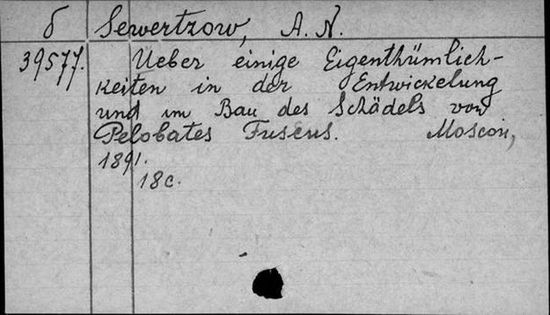 б Sewertzow, A. N.
39577. Ueber einige Eigenthümlich-
keiten in der Entwickelung
und im Bau des Schädels von
Pelobates Fuscus. Moscou,
1891.
18c.